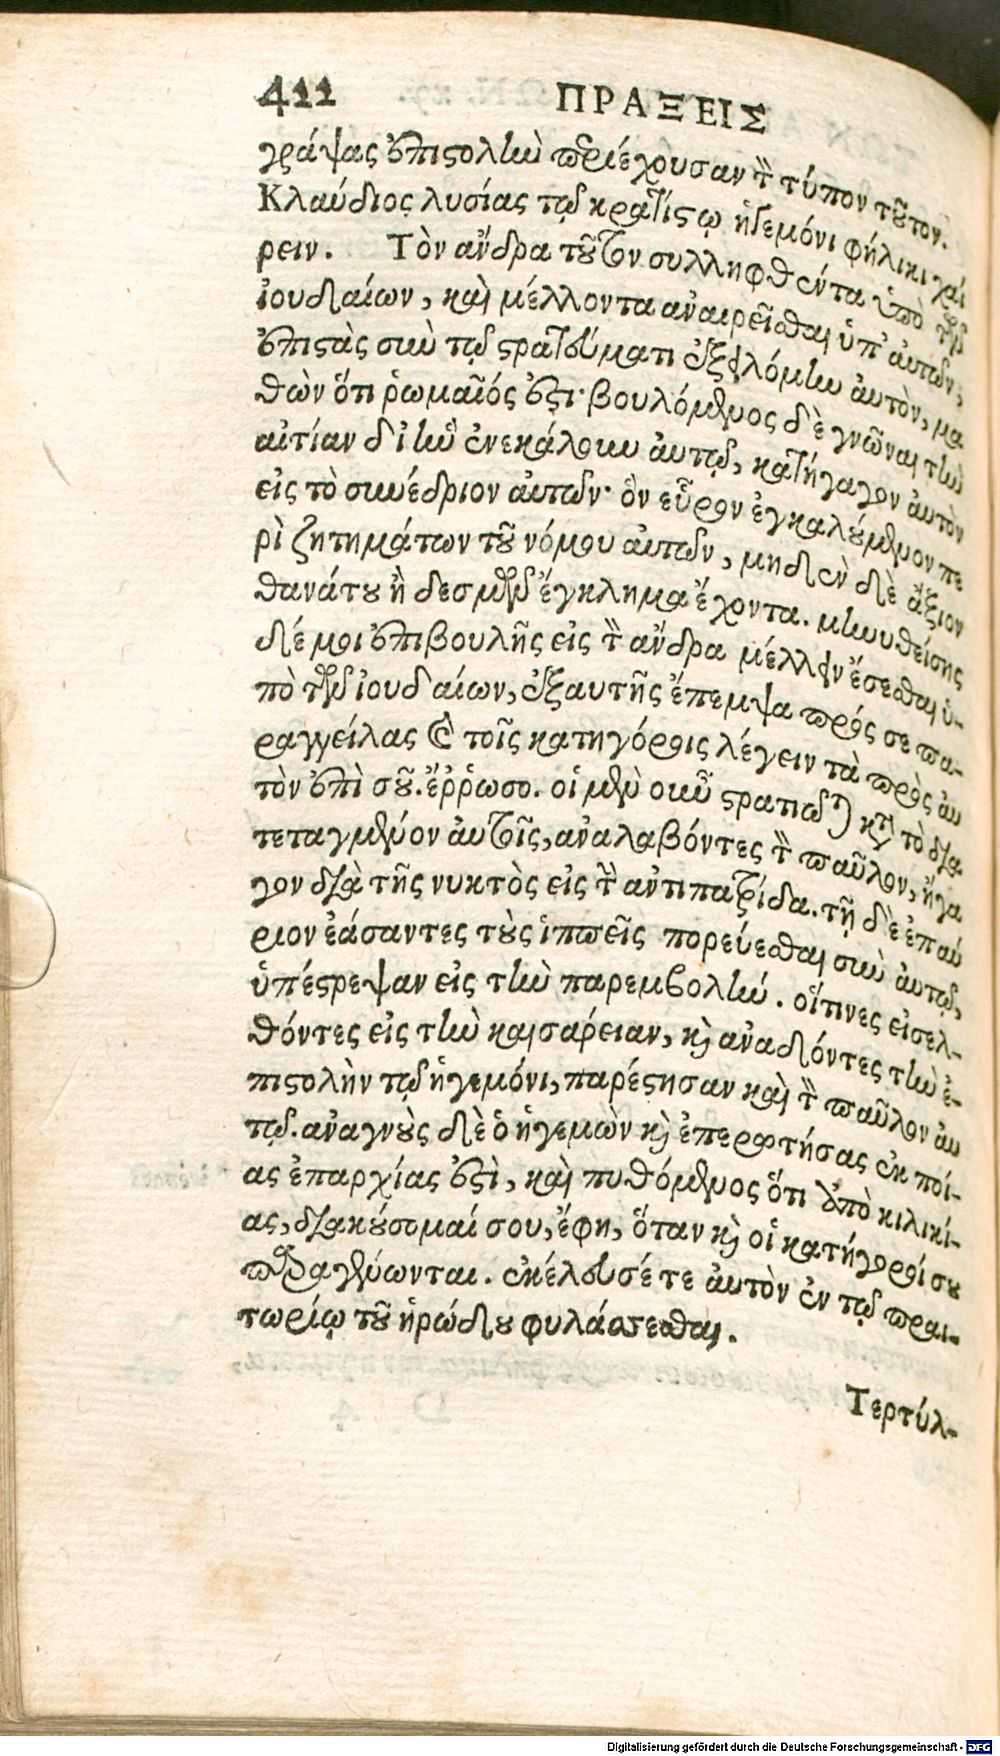 422 ΠΡΑΞΕΙΣ
γράψας ἐπιστολὴν περιέχουσαν τὸν τύπον τοῦτον.
Κλαύδιος λυσίας τῷ κρατίστῳ ἡγεμόνι φήλικι χαί
ρειν. Τὸν ἄνδρα τοῦτον συλληφθέντα ὑπὸ τῶν
ἰουδαίων, καὶ μέλλοντα ἀναιρεῖσθαι ὑπ' αὐτῶν,
ἐπιστὰς σὺν τῷ στρατεύματι ἐξειλόμην αὐτὸν, μα
θὼν ὅτι ῥωμαῖός ἐστι· βουλόμενος δὲ γνῶναι τὴν
αἰτίαν δι' ἣν ἐνεκάλουν αὐτῷ, κατήγαγον αὐτὸν
εἰς τὸ συνέδριον αὐτῶν· ὃν εὗρον ἐγκαλούμενον πε
ρὶ ζητημάτων τοῦ νόμου αὐτῶν, μηδὲν δὲ ἄξιον
θανάτου ἢ δεσμῶν ἔγκλημα ἔχοντα. μηνυθείσης
δέ μοι ἐπιβουλῆς εἰς τὸν ἄνδρα μέλλειν ἔσεσθαι ὑ-
πὸ τῶν ἰουδαίων, ἐξαυτῆς ἔπεμψα πρός σε πα-
ραγγείλας καὶ τοῖς κατηγόροις λέγειν τὰ πρὸς αὐ
τὸν ἐπὶ σοῦ. ἔῤῥωσο. οἱ μὲν οὖν στρατιῶται κατὰ τὸ δια
τεταγμένον αὐτοῖς, ἀναλαβόντες τὸν παῦλον, ἤγα
γον διὰ τῆς νυκτὸς εἰς τὴν ἀντιπατρίδα. τῇ δὲ ἐπαύ
ριον ἐάσαντες τοὺς ἱππεῖς πορεύεσθαι σὺν αὐτῷ,
ὑπέστρεψαν εἰς τὴν παρεμβολήν. οἵτινες εἰσελ-
θόντες εἰς τὴν καισάρειαν, καὶ ἀναδόντες τὴν ἐ-
πιστολὴν τῷ ἡγεμόνι, παρέστησαν καὶ τὸν παῦλον αὐ
τῷ. ἀναγνοὺς δὲ ὁ ἡγεμὼν καὶ ἐπερωτήσας ἐκ ποί-
ας ἐπαρχίας ἐστὶ, καὶ πυθόμενος ὅτι ἀπὸ κιλικί-
ας, διακούσομαί σου, ἔφη, ὅταν καὶ οἱ κατήγοροί σου
παραγένωνται. ἐκέλευσέ τε αὐτὸν ἐν τῷ πραι-
τωρίῳ τοῦ ἡρώδου φυλάσσεσθαι.
Τερτύλ-
Digitalisierung gefördert durch die Deutsche Forschungsgemeinschaft - DFG